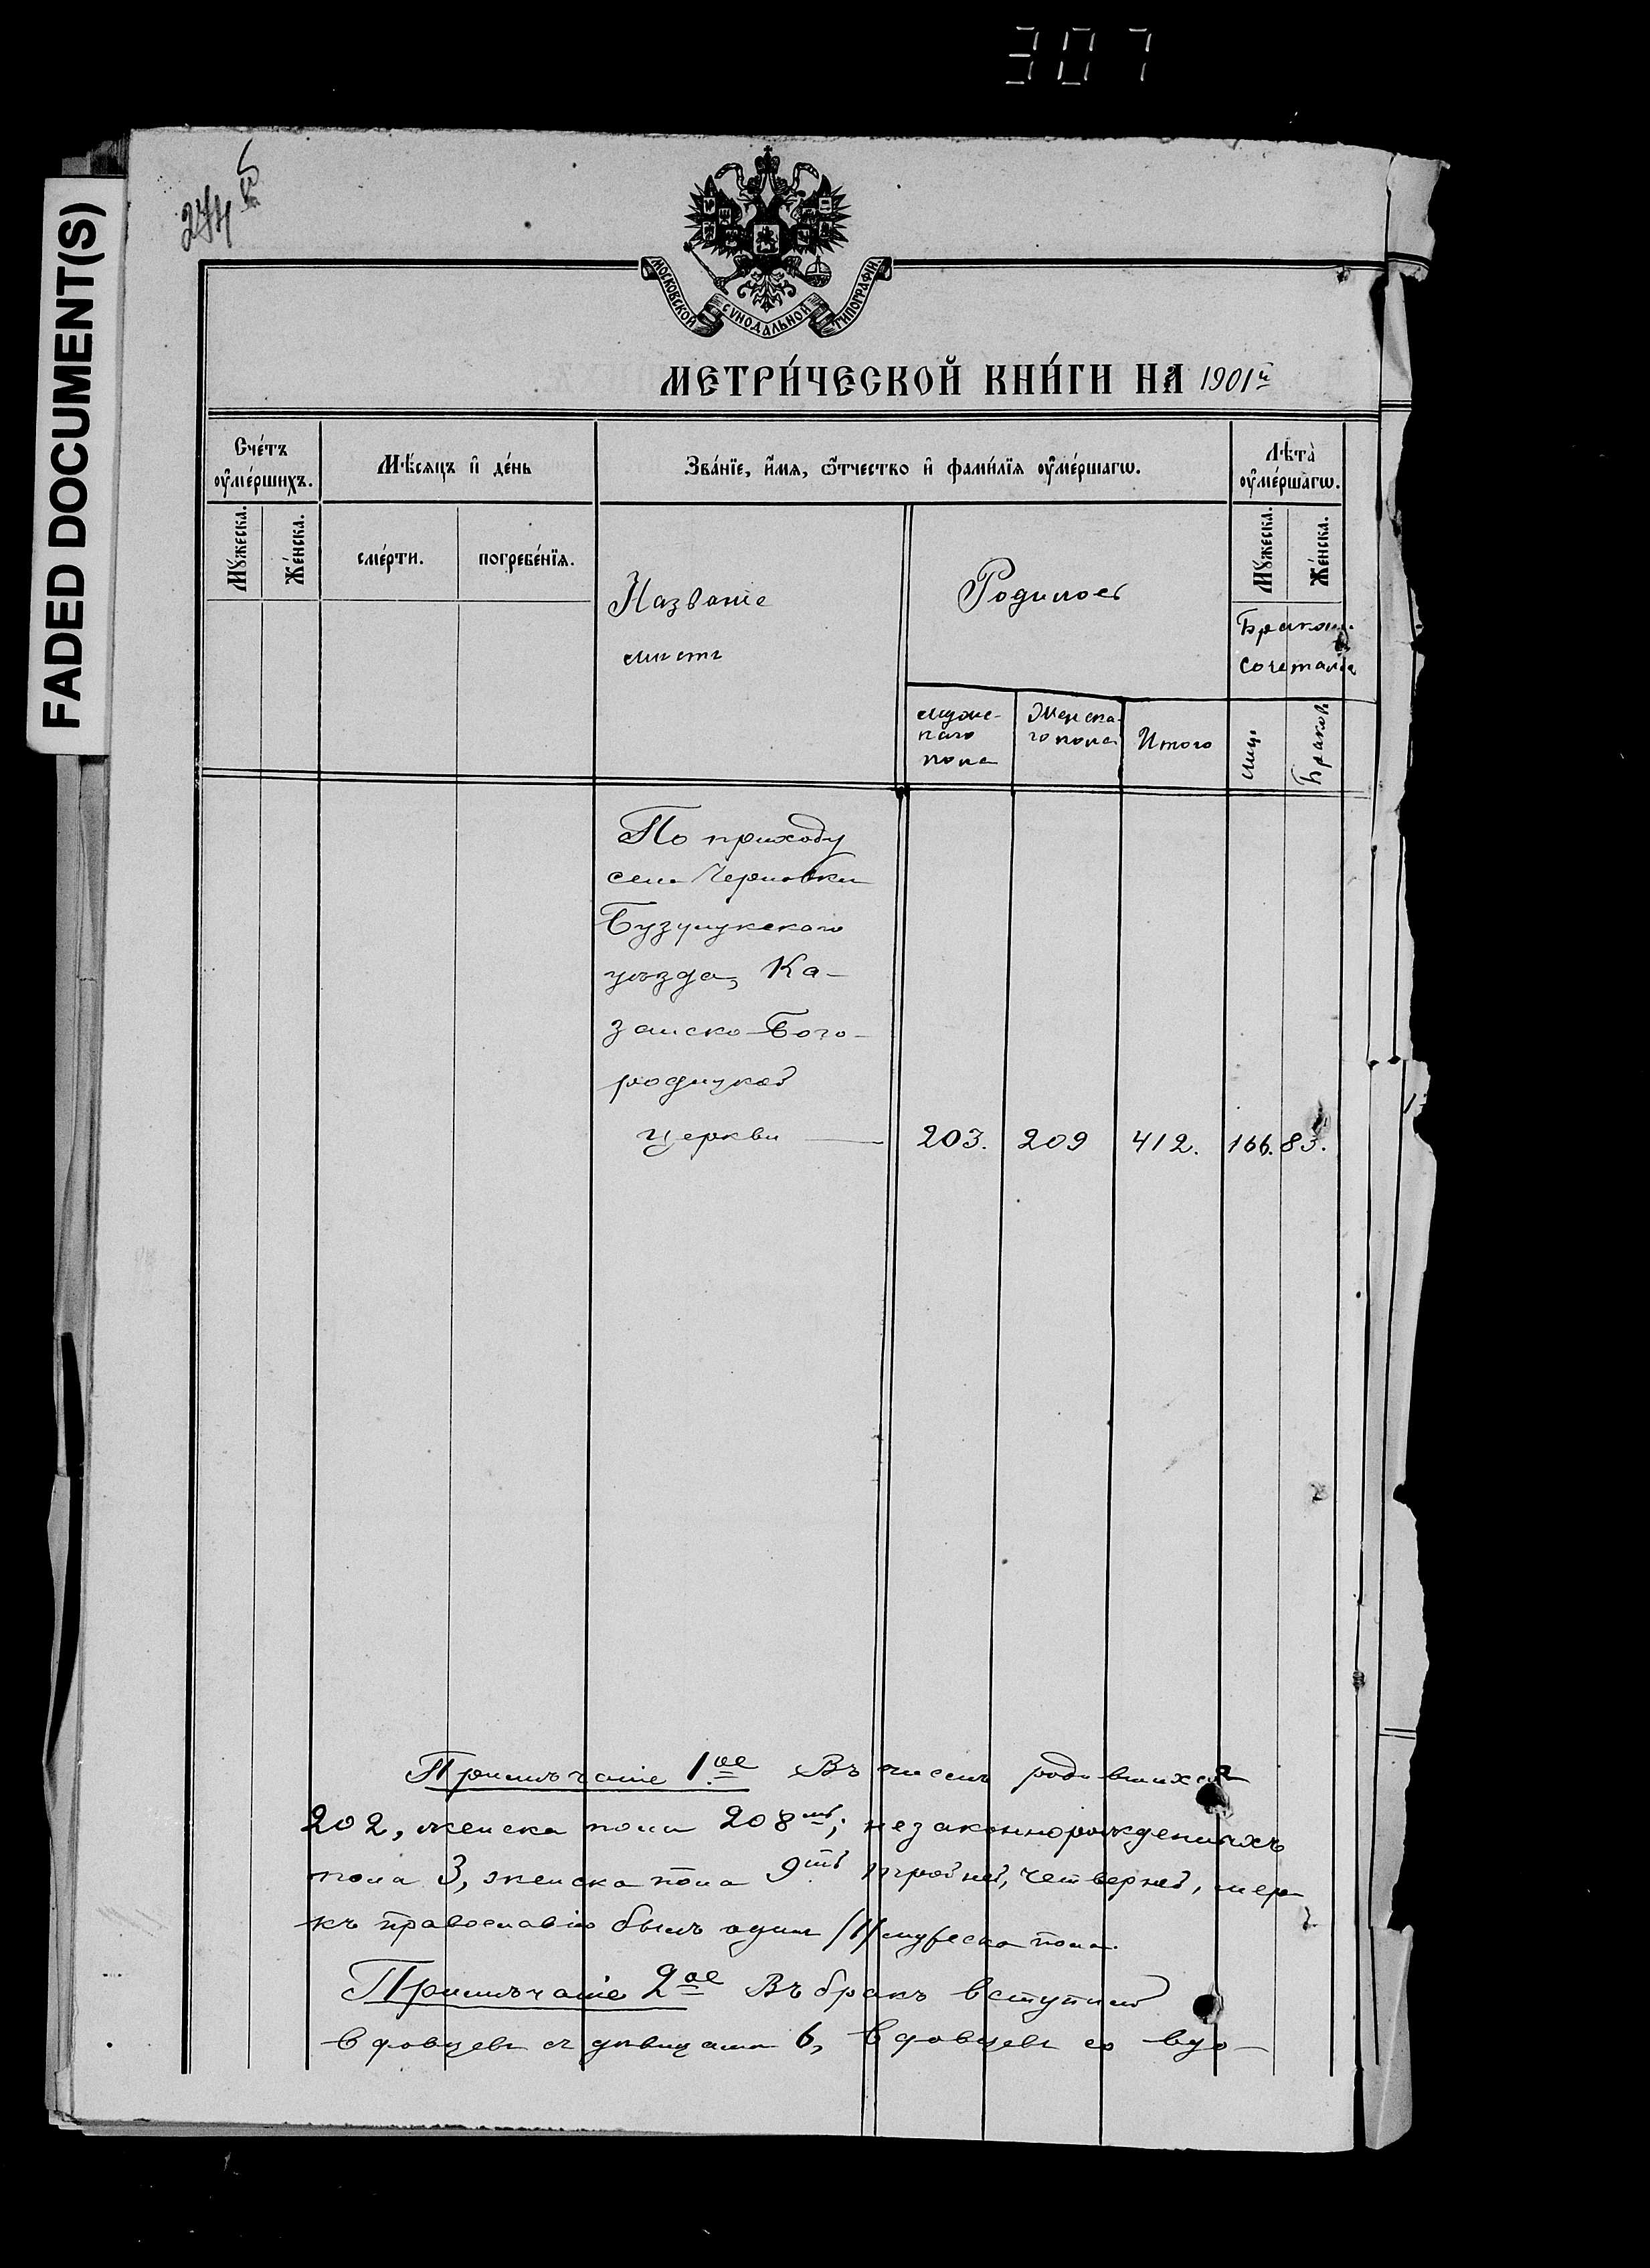 307
FADED DOCUMENT(S)
МОСКОВСКОЙ СУНОДАЛЬНОЙ ТИПОГРАФІИ
МЕТРИ́ЧЕСКОЙ КНИ́ГИ НА 1901й
Сче́тъ оу҆ме́ршихъ.
Мѣ́сяцъ и҆ де́нь
Зва́нїе, и҆́мѧ, ѻ҆́тчество и҆ фами́лїѧ оу҆ме́ршагѡ.
Лѣ́та оу҆ме́ршагѡ.
Мꙋ́жеска.
Же́нска.
сме́рти.
погребе́нїѧ.
Мꙋ́жеска.
Же́нска.
Названіе
мѣстъ
Родилось
Бракомъ
сочеталось
мужескаго пола
Женскаго пола
Итого
лицъ
Браковъ
По приходу
села Черновки
Бузулукскаго
уѣзда, Ка-
занско-Бого-
родицкой
церкви — 203. 209 412. 166. 83.
Примѣчаніе 1.ое Въ числѣ родившихся
202, женска пола 208; незаконнорожденныхъ
пола 3, женска пола 9 тройней, четверней, мер
къ православію былъ одинъ /1/ мужеска пола.
Примѣчаніе 2ое Въ бракъ вступило
вдовцевъ съ дѣвицами 6, вдовцевъ со вдо-